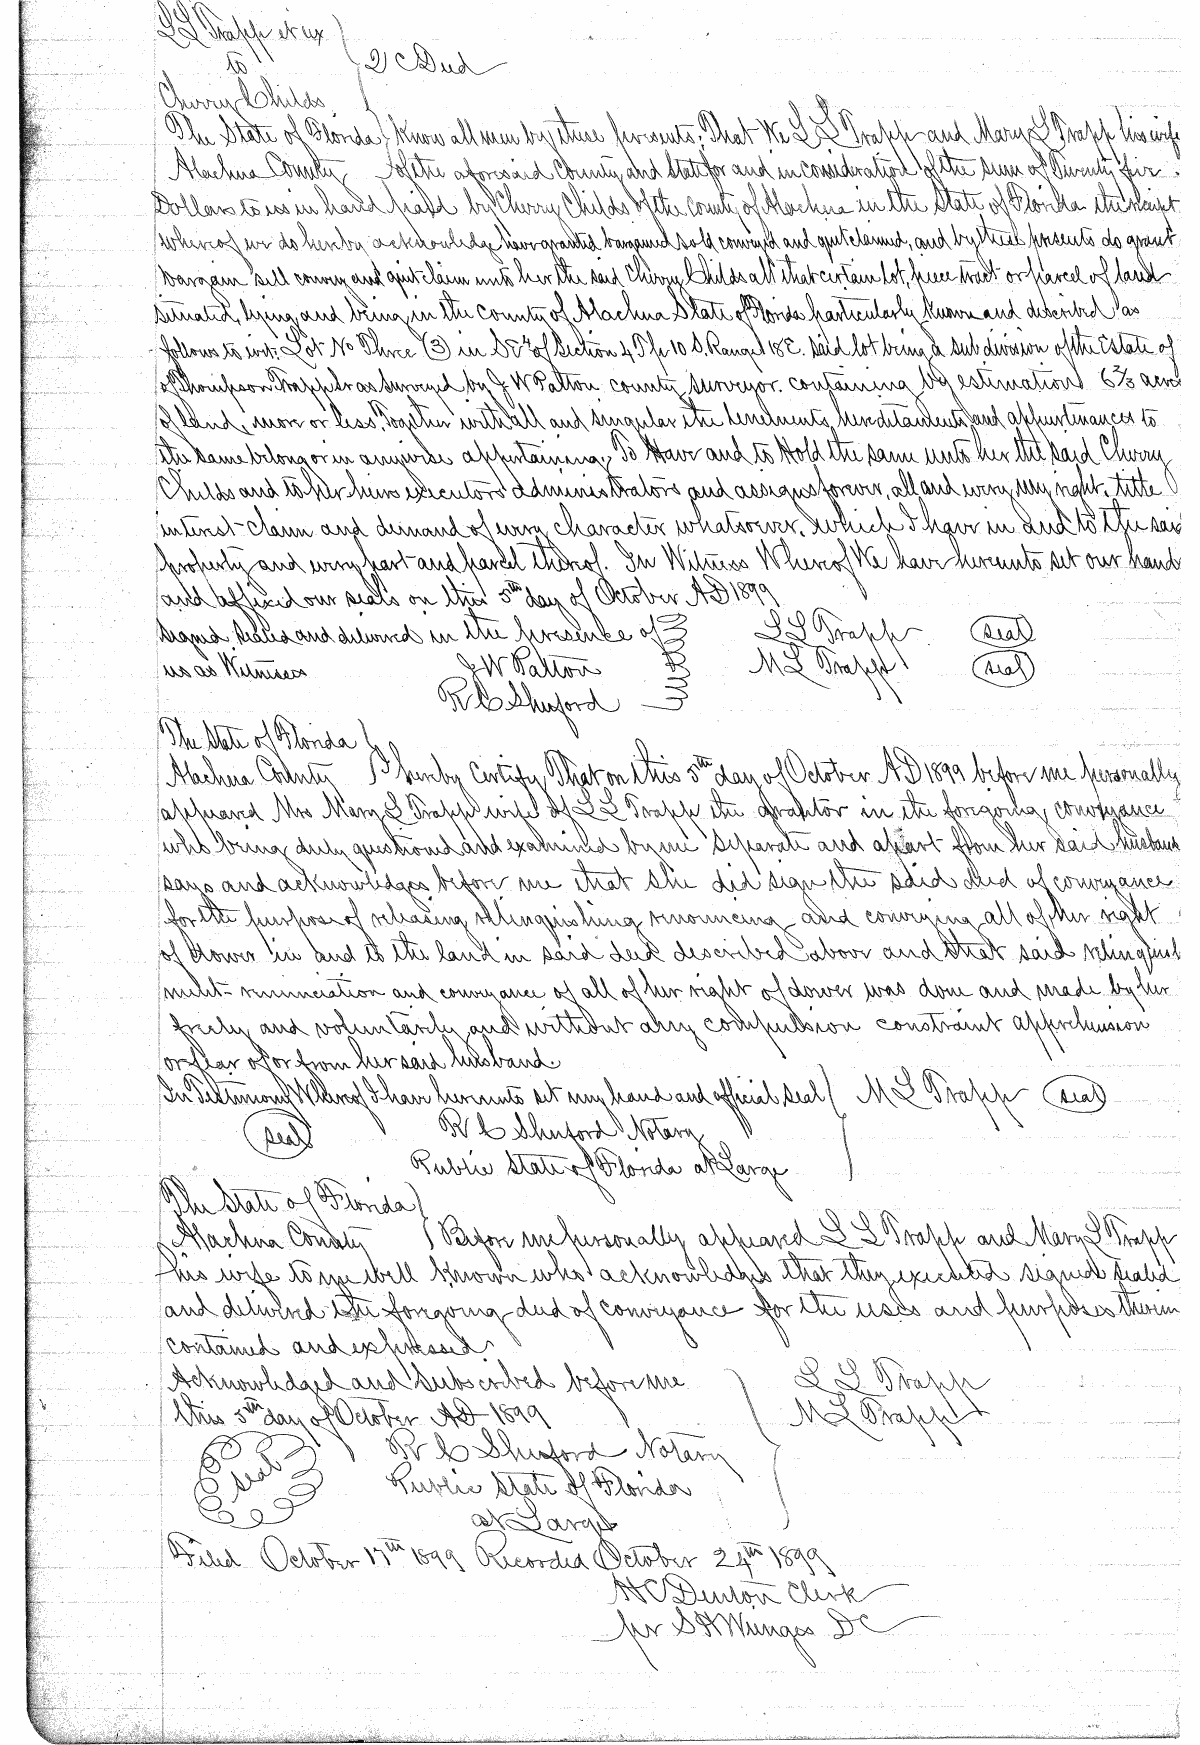 L L Trapp et ux
to
Q C Deed
Cherry Childs
The State of Florida Know all men by these presents, That We L L Trapp and Mary L Trapp his wife
Alachua County of the aforesaid County, and State for and in consideration of the sum of Twenty five
Dollars to us in hand paid by Cherry Childs of the county of Alachua in the State of Florida the receipt
whereof we do hereby acknowledge have granted bargained sold conveyed and quitclaimed, and by these presents do grant
bargain sell convey and quit claim unto her the said Cherry Childs all that certain lot, piece tract or parcel of land
situated, lying and being in the county of Alachua State of Florida particularly known and described as
follows to wit: Lot No Three (3) in of Section 4 Tp 10 S. Range 18 E. said lot being a subdivision of the Estate of
of Thompson Trapp as surveyed by J W Patton county surveyor. containing by estimation 6 2/3 acres
of land, more or less, Together with all and singular the tenements, hereditaments and appurtenances to
the same belong or in anywise appertaining, To Have and to Hold the same unto her the said Cherry
Childs and to her heirs executors administrators and assigns forever, all and every, right, title
interest claim and demand of every character whatsoever, which I have in and to the said
property and every part and parcel thereof. In Witness Whereof We have hereunto set our hand
and affixed our seals on this 5th day of October AD 1899
signed, sealed and delivered in the presence of L L Trapp (seal)
us as Witnesses J W Patton M L Trapp (seal)
R C Shuford
The State of Florida
Alachua County I hereby Certify, That on this 5th day of October AD 1899 before me personally
appeared Mrs Mary L Trapp wife of L L Trapp the grantor in the foregoing, conveyance
who being duly questioned and examined by me separate and apart from her said husband
says and acknowledges before me that she did sign the said deed of conveyance
for the purpose of releasing relinquishing renouncing and conveying all of her right
of dower in and to the land in said deed described above and that said relinquish
ment renunciation and conveyance of all of her right of dower was done and made by her
freely and voluntarily and without any compulsion constraint apprehension
or fear of or from her said husband.
In Testimony Whereof I have hereunto set my hand and official seal M L Trapp (seal)
(seal) R C Shuford Notary
Public State of Florida at Large
The State of Florida
Alachua County Before me personally appeared L L Trapp and Mary L Trapp
his wife to me well known who acknowledges that they executed signed sealed
and delivered the foregoing deed of conveyance for the uses and purposes therein
contained and expressed.
Acknowledged and Subscribed before me L L Trapp
this 5th day of October AD 1899 M L Trapp
seal R C Shuford Notary
Public State of Florida
at Large
Filed October 17th 1899 Recorded October 24th 1899
H C Denton Clerk
per S H Wienges D C